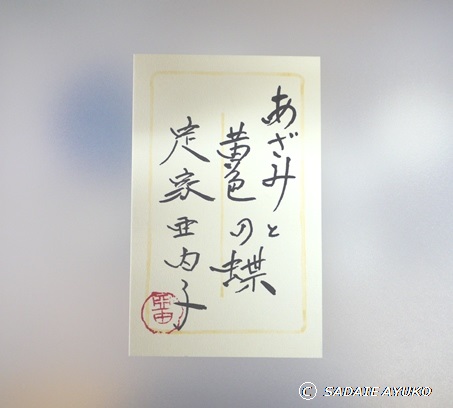 あざみと
黄色の蝶
定家亜由子
© SADAIE AYUKO